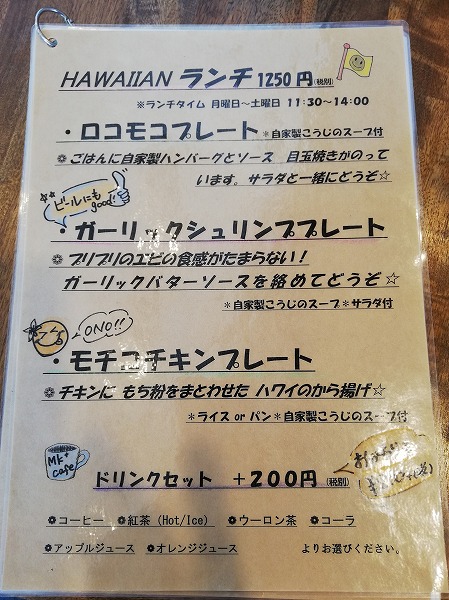 HAWAIIAN ランチ 1250円(税別)
※ランチタイム 月曜日～土曜日 11:30～14:00
・ロコモコプレート *自家製こうじのスープ付
❁ごはんに自家製ハンバーグとソース 目玉焼きがのって
います。サラダと一緒にどうぞ☆
ビールにも
good
・ガーリックシュリンププレート
❁プリプリのエビの食感がたまらない！
ガーリックバターソースを絡めてどうぞ☆
*自家製こうじのスープ*サラダ付
ONO!!
・モチコチキンプレート
❁チキンに もち粉をまとわせた ハワイのから揚げ☆
*ライス or パン*自家製こうじのスープ付
MK
cafe
ドリンクセット ＋200円(税別)
❁コーヒー ❁紅茶 (Hot/Ice) ❁ウーロン茶 ❁コーラ
❁アップルジュース ❁オレンジジュース よりお選びください。